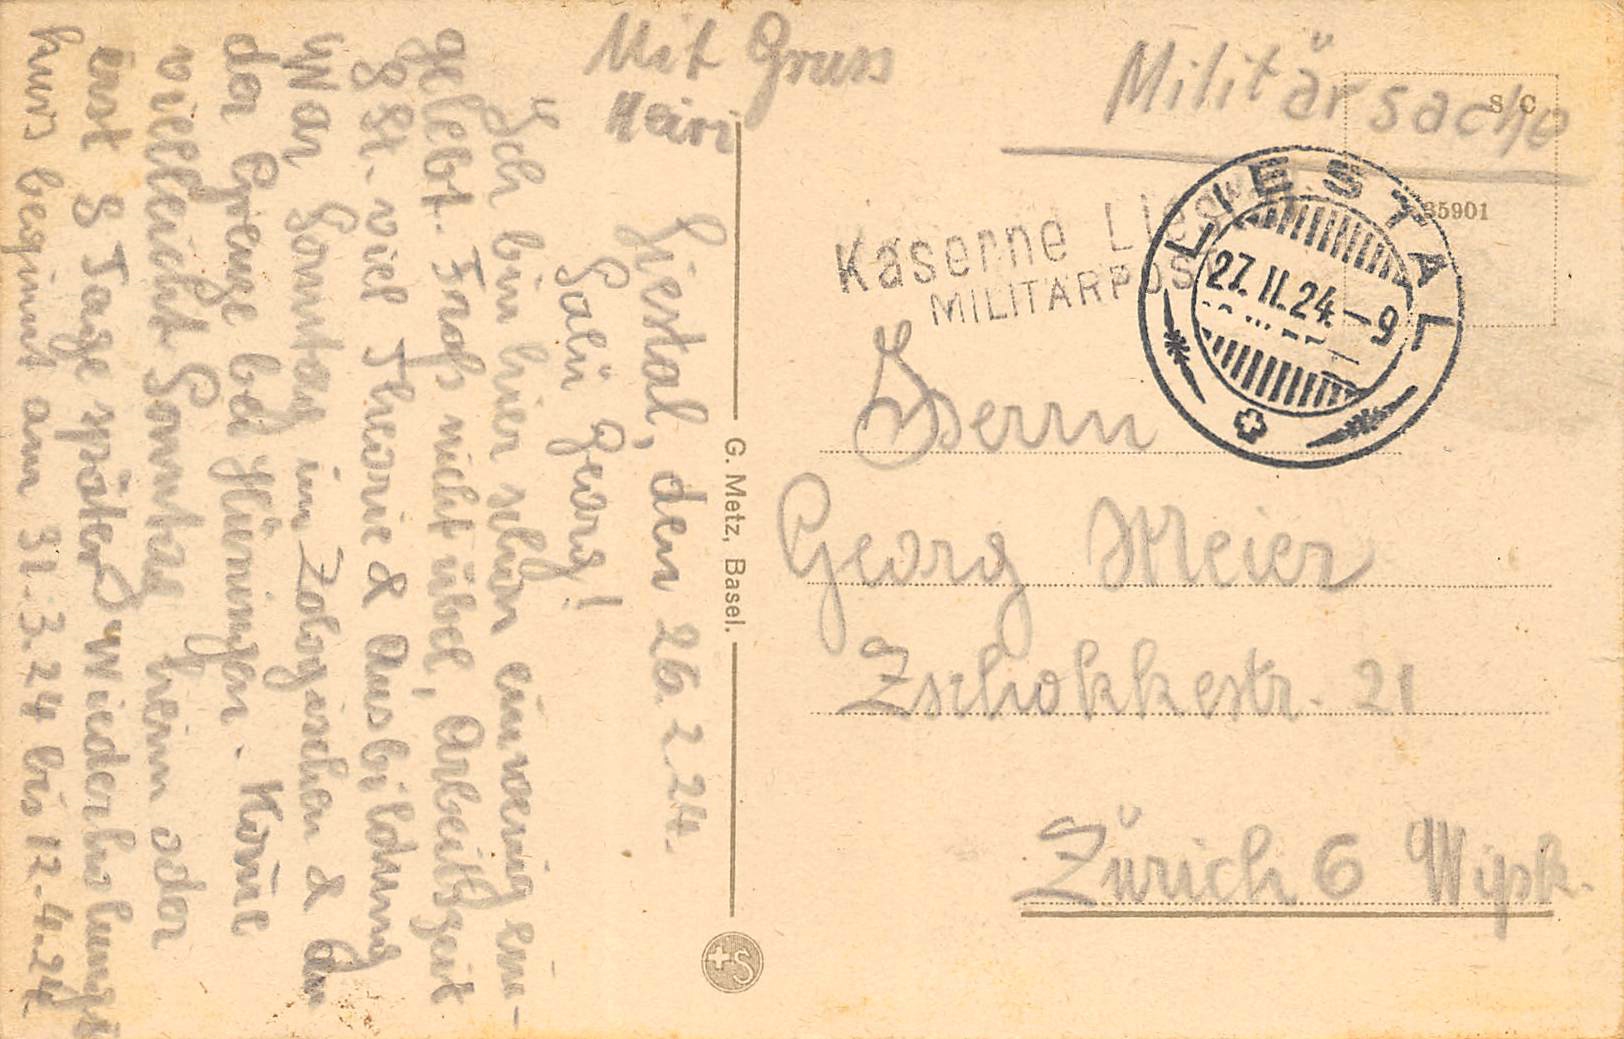 Mit Gruss
Heiri
Liestal, den 26.2.24.
Salü Georg!
Ich bin hier schon einwenig ein-
gelebt. Frass nicht übel, Arbeitszeit
8 St. viel Theorie & Ausbildung
War Sonntag im Zologischen & an
der Grenze bei Hüningen. Kome
vielleicht Sonntag heim oder
erst 8 Tage später Wiederholungs
kurs beginnt am 31.3.24 bis 12.4.24
G. Metz, Basel.
Militärsache
S C
35901
Kaserne Lies
MILITÄRPOS
LIESTAL
27.II.24.-9
Herrn
Georg Meier
Zschokkestr. 21
Zürich 6 Wipk.